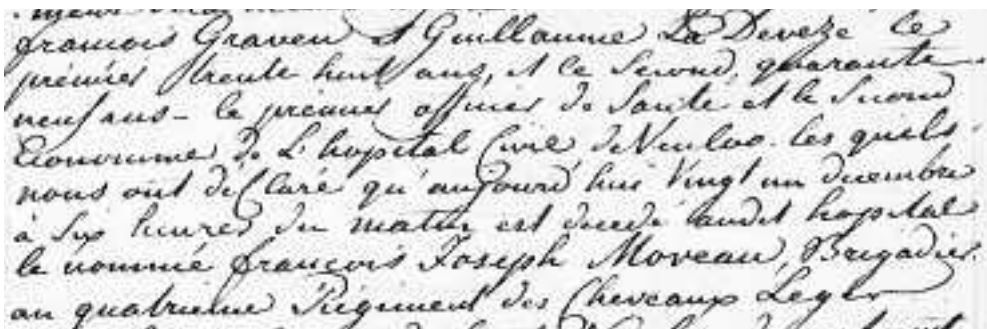 françois Graven et Guillaume La Deveze Ce
prémier trente huit ans, et le Second, quarante
neuf ans - le premier officier de Santé et le Second
Economme de L'hopital Civil de Venloo. les quels
nous ont déCLaré qu'aujourd'hui Vingt un decembre
à Six heures du matin est decedé audit hopital
le nommé françois Joseph Moveau, Brigadier
au quatrieme Régiment des Cheveaux Leger